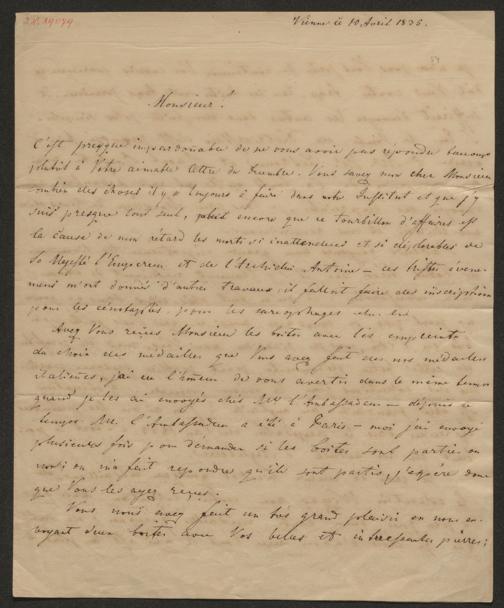 Vienne ce 10 Avril 1836.
Monsieur!
C'est presque impardonable de ne vous avoir pas repondu beaucoup
plutôt à Votre aimable lettre du Decembre. Vous savez mon cher Monsieur
combien des choses il y a toujours à faire dans notre Institut et que j'y
suis presque tout seul, encore que ce tourbillon d'affaires est
la cause de mon rétard les morts si inattendues et si déplorables de
Sa Majesté l'Empereur et de l'Archiduc Antoine — ces tristes évene-
mens m'ont donnés d'autres travaux, il falloit faire des inscriptions
pour les cénotaphes, pour les sarcophages etc. etc.
Avez Vous reçues Monsieur les boites avec les empreints
du choix des médailles que Vous avez fait de nos médailles
italiennes, j'ai eu l'honneur de vous avertir dans le même temps
quand je les ai envoyés chés Mr l'Ambassadeur — dépuis ce
temps Mr. l'Ambassadeur a été à Paris — moi j'ai envoyé
plusieures fois pour demander si les boites sont parties ou
non: on m'a fait repondre qu'ils sont partis, j'espère donc
que Vous les ayez reçues.
Vous nous avez fait un très grand plaisir en nous en-
voyant deux boites avec Vos belles et intressantes pierres;